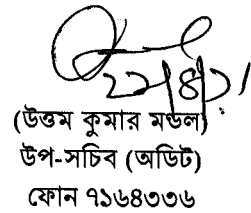 (উত্তম কুমার মন্ডল)
উপ-সচিব (অডিট)
ফোন ৭১৬৪৩৩৬